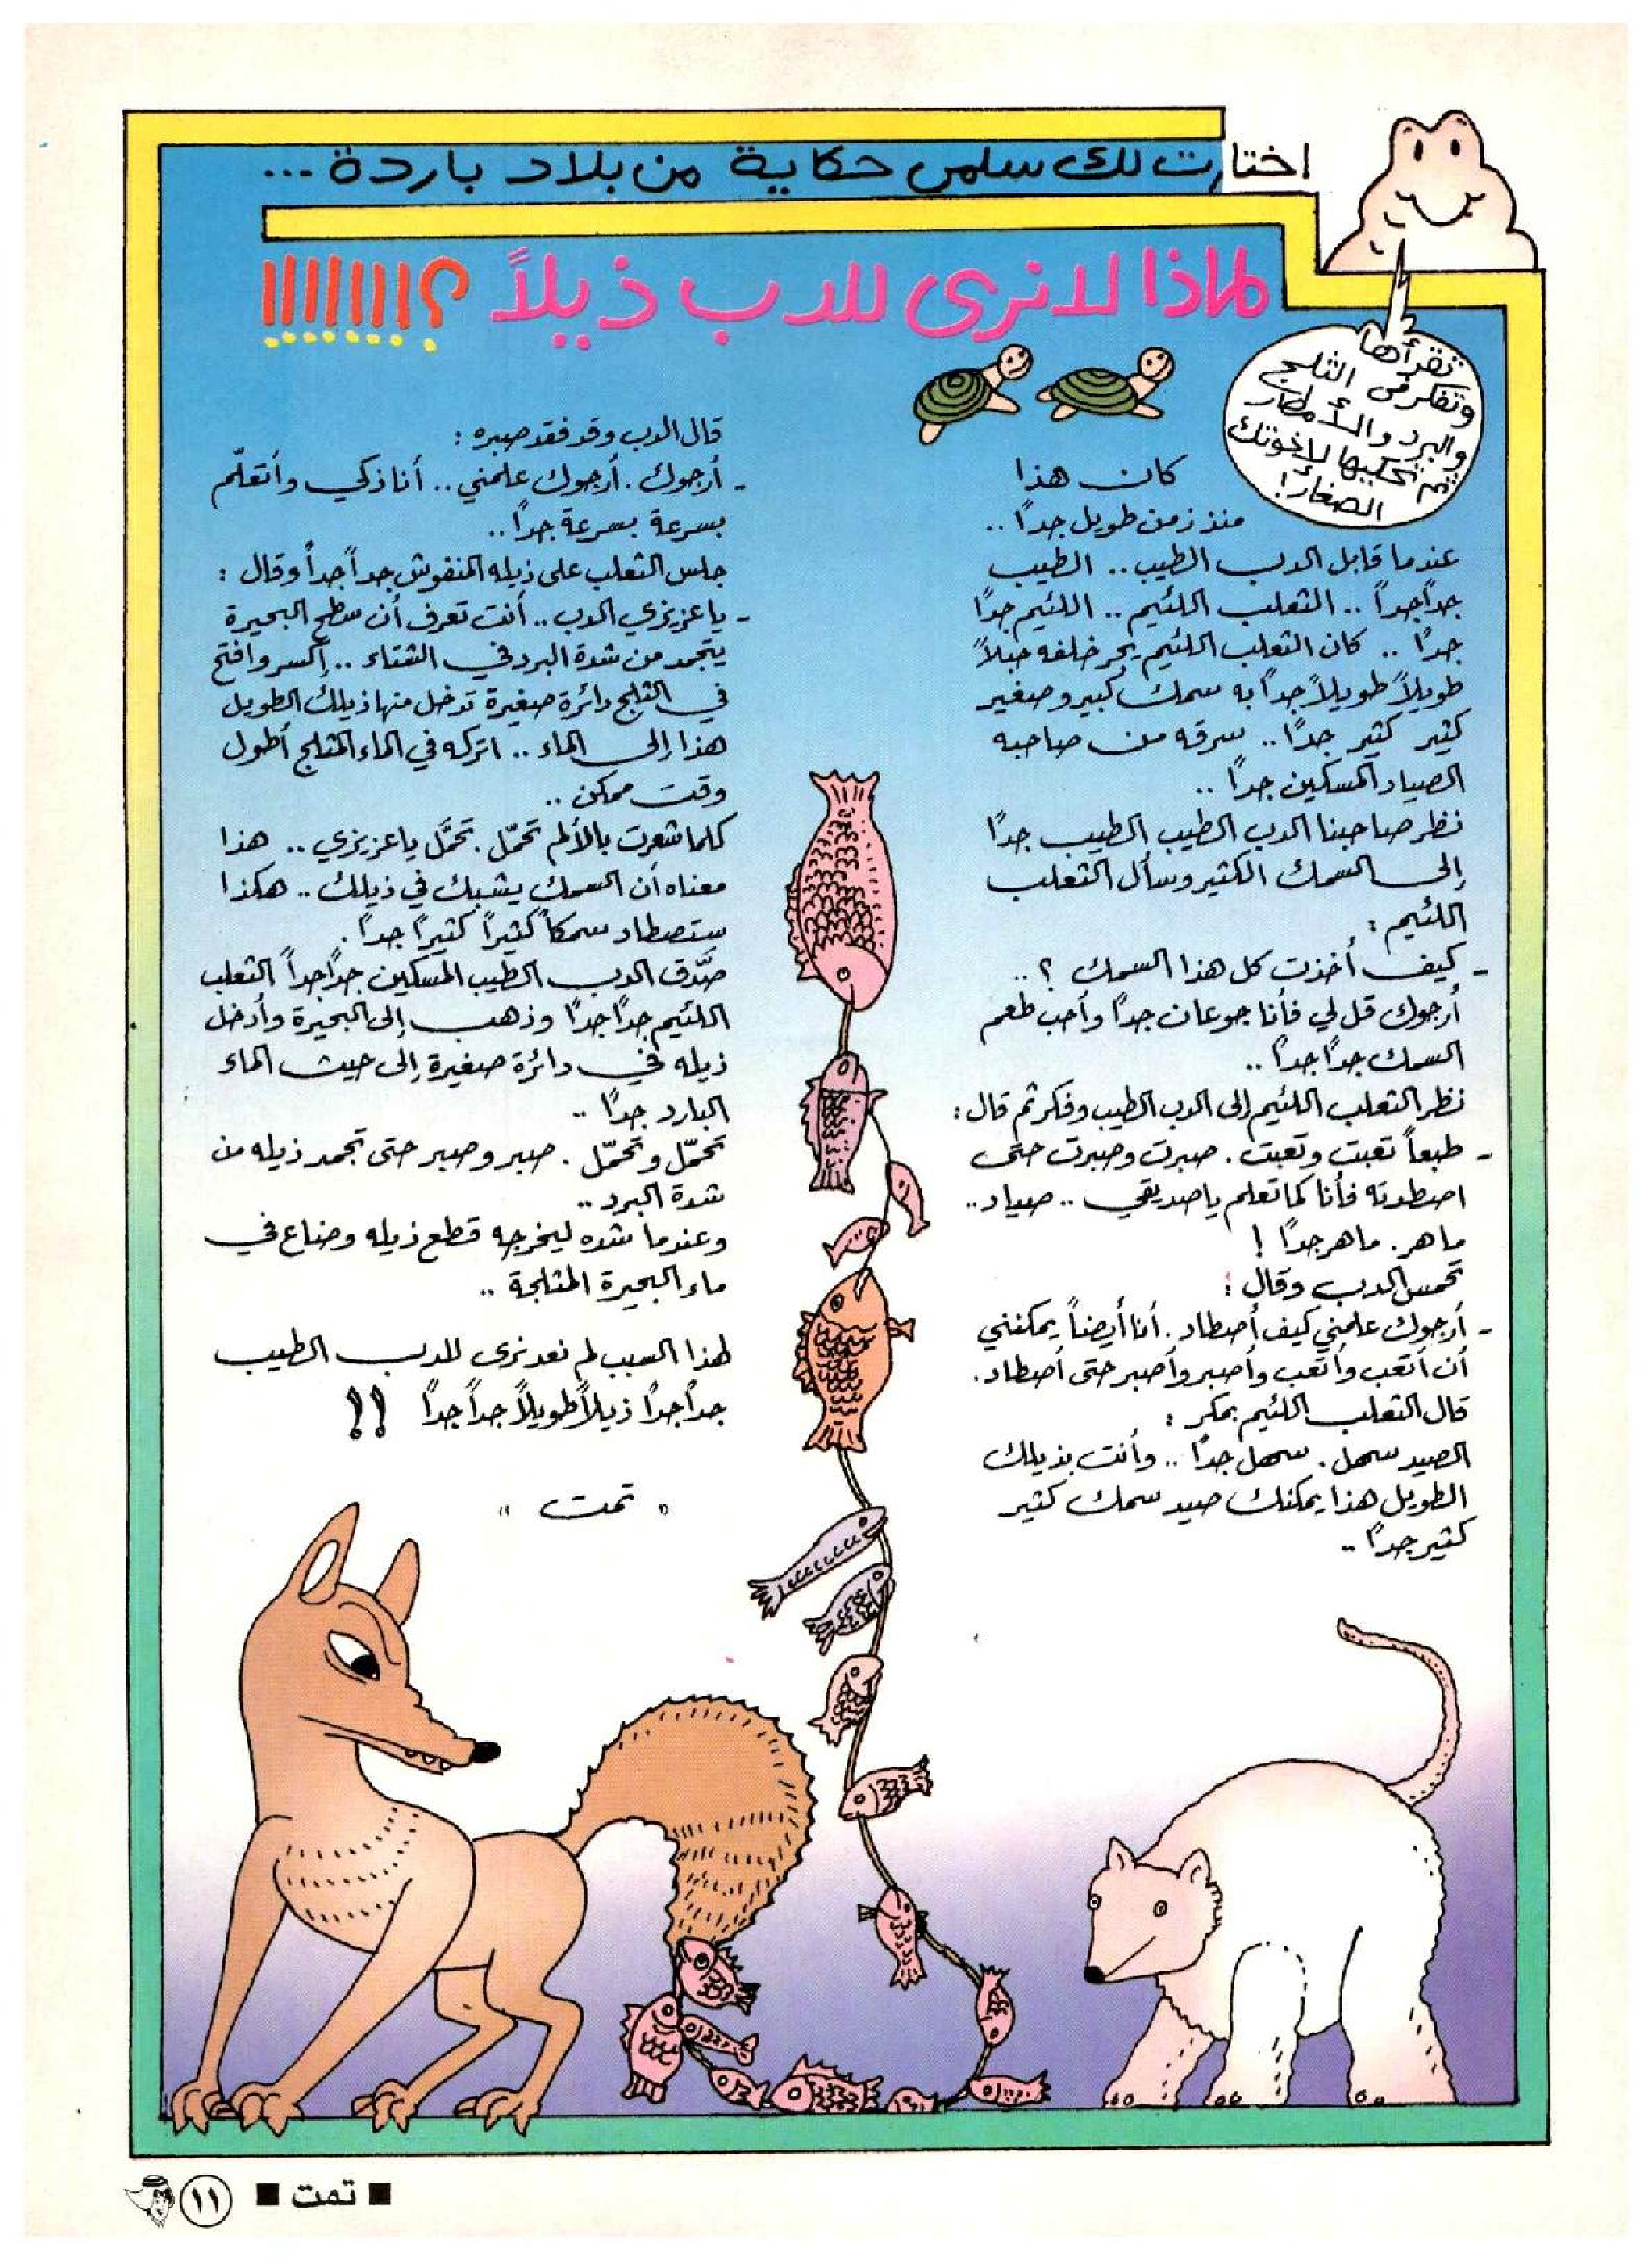 اختارت لك سلمى حكاية من بلاد باردة ...
لماذا لا نرى للدب ذيلاً ؟!!!!!!!!
تقرأها
وتفكر في الثلج
والبرد والأمطار
ثم تحكيها لإخوتك
الصغار!
كان هذا
منذ زمن طويل جداً ..
عندما قابل الدب الطيب .. الطيب
جداً جداً .. الثعلب اللئيم .. اللئيم جداً
جداً .. كان الثعلب اللئيم يجر خلفه حبلاً
طويلاً طويلاً جداً به سمك كبير وصغير
كثير كثير جداً .. سرقه من صاحبه
الصياد المسكين جداً ..
نظر صاحبنا الدب الطيب الطيب جداً
إلى السمك الكثير وسأل الثعلب
اللئيم :
- كيف أخذت كل هذا السمك ؟ ..
أرجوك قل لي فأنا جوعان جداً وأحب طعم
السمك جداً جداً ..
نظر الثعلب اللئيم إلى الدب الطيب وفكر ثم قال :
- طبعاً تعبت وتعبت . صبرت وصبرت حتى
اصطدته فأنا كما تعلم يا صديقي .. صياد ..
ماهر . ماهر جداً !
تحمس الدب وقال :
- أرجوك علمني كيف أصطاد . أنا أيضاً يمكنني
أن أتعب وأتعب وأصبر وأصبر حتى أصطاد .
قال الثعلب اللئيم بمكر :
الصيد سهل . سهل جداً .. وأنت بذيلك
الطويل هذا يمكنك صيد سمك كثير
كثير جداً ..
قال الدب وقد فقد صبره :
- أرجوك . أرجوك علمني .. أنا ذكي وأتعلّم
بسرعة بسرعة جداً ..
جلس الثعلب على ذيله المنفوش جداً جداً وقال :
- يا عزيزي الدب .. أنت تعرف أن سطح البحيرة
يتجمد من شدة البرد في الشتاء .. إكسر وافتح
في الثلج دائرة صغيرة تدخل منها ذيلك الطويل
هذا إلى الماء .. اتركه في الماء المثلج أطول
وقت ممكن ..
كلما شعرت بالألم تحمّل . تحمَّل يا عزيزي .. هذا
معناه أن السمك يشبك في ذيلك .. هكذا
ستصطاد سمكاً كثيراً كثيراً جداً .
صدَّق الدب الطيب المسكين جداً جداً الثعلب
اللئيم جداً جداً وذهب إلى البحيرة وأدخل
ذيله في دائرة صغيرة إلى حيث الماء
البارد جداً ..
تحمّل وتحمّل . صبر وصبر حتى تجمد ذيله من
شدة البرد ..
وعندما شده ليخرجه قطع ذيله وضاع في
ماء البحيرة المثلجة ..
لهذا السبب لم نعد نرى للدب الطيب
جداً جداً ذيلاً طويلاً جداً جداً !!
" تمت "
■ تمت ■ ١١